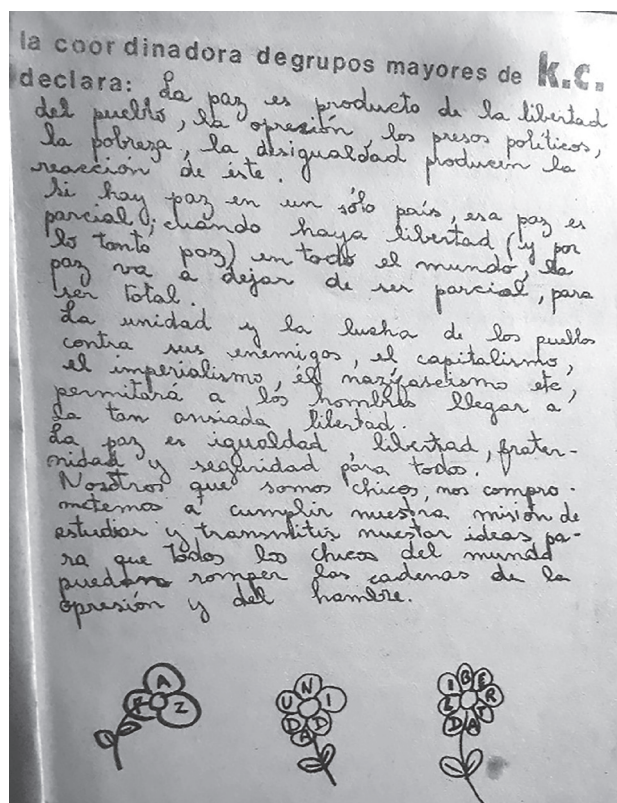 la coordinadora degrupos mayores de k.c.
declara: La paz es producto de la libertad
del pueblo, la opresión, los presos políticos,
la pobreza, la desigualdad producen la
reacción de éste.
Si hay paz en un sólo país, esa paz es
parcial; cuando haya libertad (y por
lo tanto paz) en todo el mundo, la
paz va a dejar de ser parcial, para
ser total.
La unidad y la lucha de los pueblos
contra sus enemigos, el capitalismo,
el imperialismo, el nazifascismo etc,
permitará a los hombres llegar a
la tan ansiada libertad.
La paz es igualdad, libertad, frater-
nidad y seguridad para todos.
Nosotros que somos chicos, nos compro-
metemos a cumplir nuestra misión de
estudiar y transmitir nuestar ideas pa-
ra que todos los chicos del mundo
puedan romper las cadenas de la
opresión y del hambre.
PAZ
UNIDAD
LIBERTAD